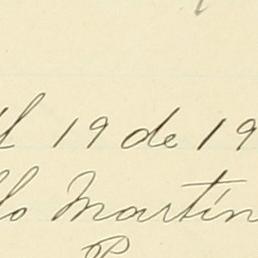 19 de 19
Martín